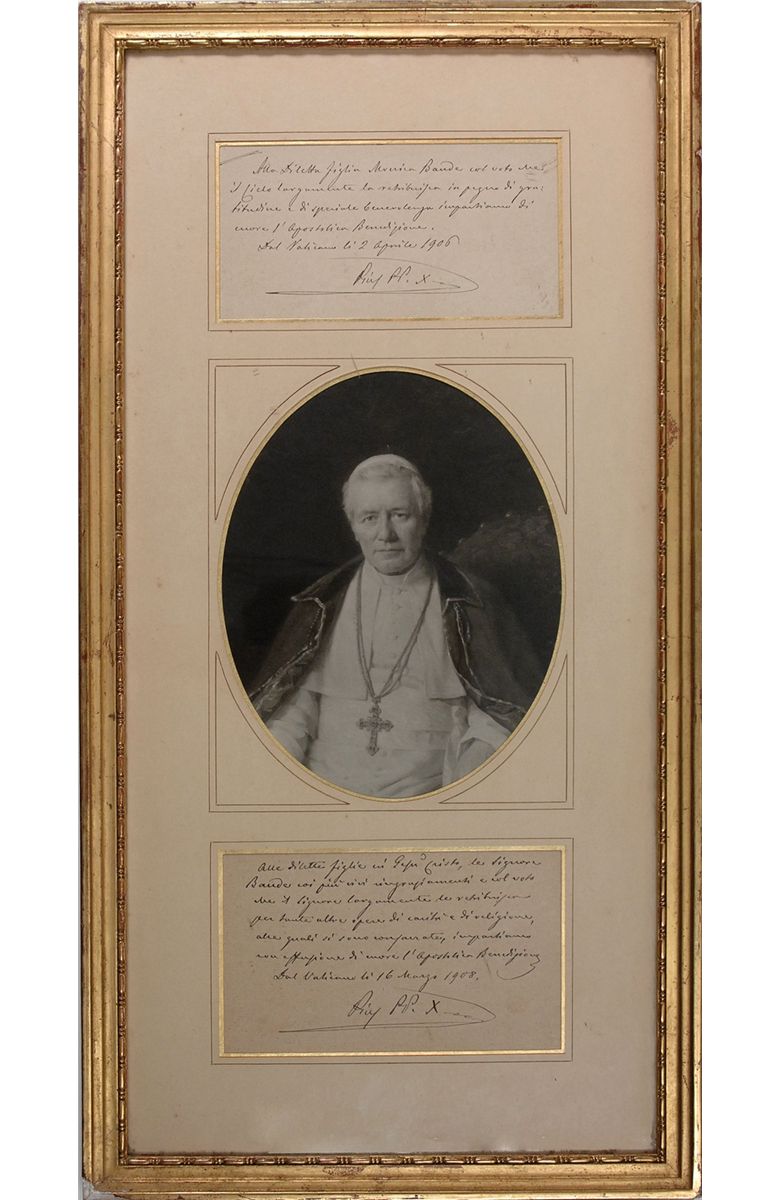 Alla Diletta figlia Monica Bande col voto che
il Cielo largamente la retribuisca in pegno di gra=
titudine e di speciale benevolenza impartiamo di
cuore l'Apostolica Benedizione.
Dal Vaticano li 2 Aprile 1906
Pius PP. X
Alle dilette figlie in Gesù Cristo, le Signore
Bande coi più vivi ringraziamenti e col voto
che il Signore largamente le retribuisca
per tante altre opere di carità e di religione,
alle quali si sono consacrate, impartiamo
con effusione di cuore l'Apostolica Benedizione
Dal Vaticano li 16 Marzo 1908.
Pius PP. X